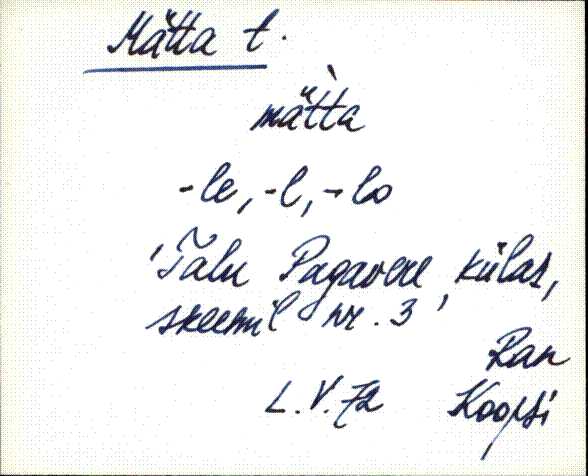 Mätta t.
mä̀tta
-le, -l, -lo
'Talu Pagavere külas,
skeemil nr. 3'
Ran
L.V. 72 Koopsi